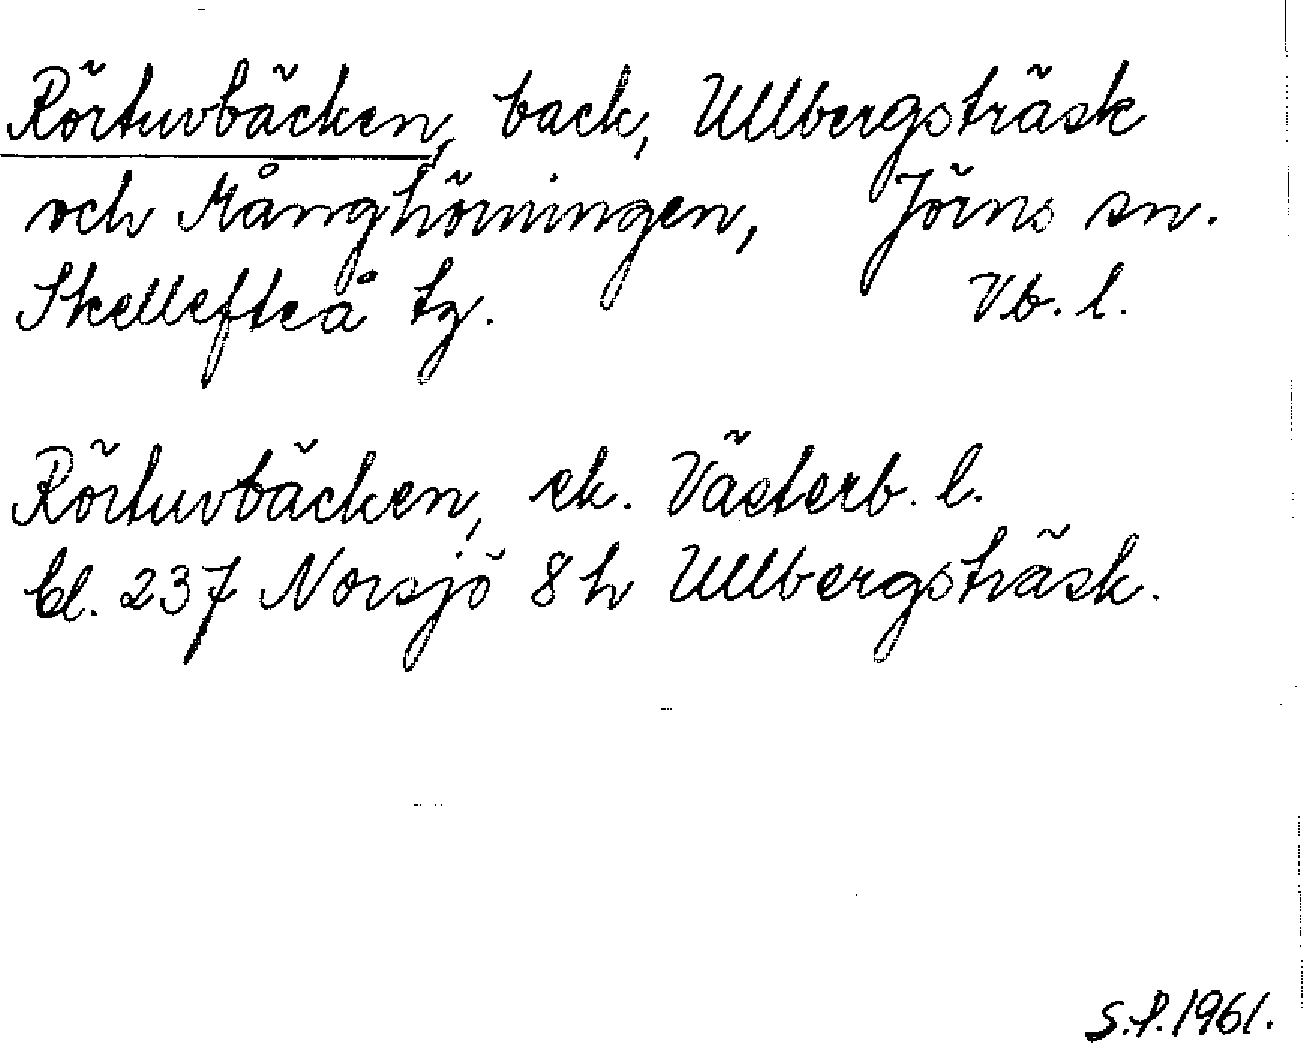 Rörtuvbäcken, back, Ullbergsträsk
och Månghörningen, Jörns sn.
Skellefteå tg. Vb. l.
Rörtuvbäcken, ek. Västerb. l.
bl. 237 Norsjö 8 h Ullbergsträsk.
S.P. 1961.